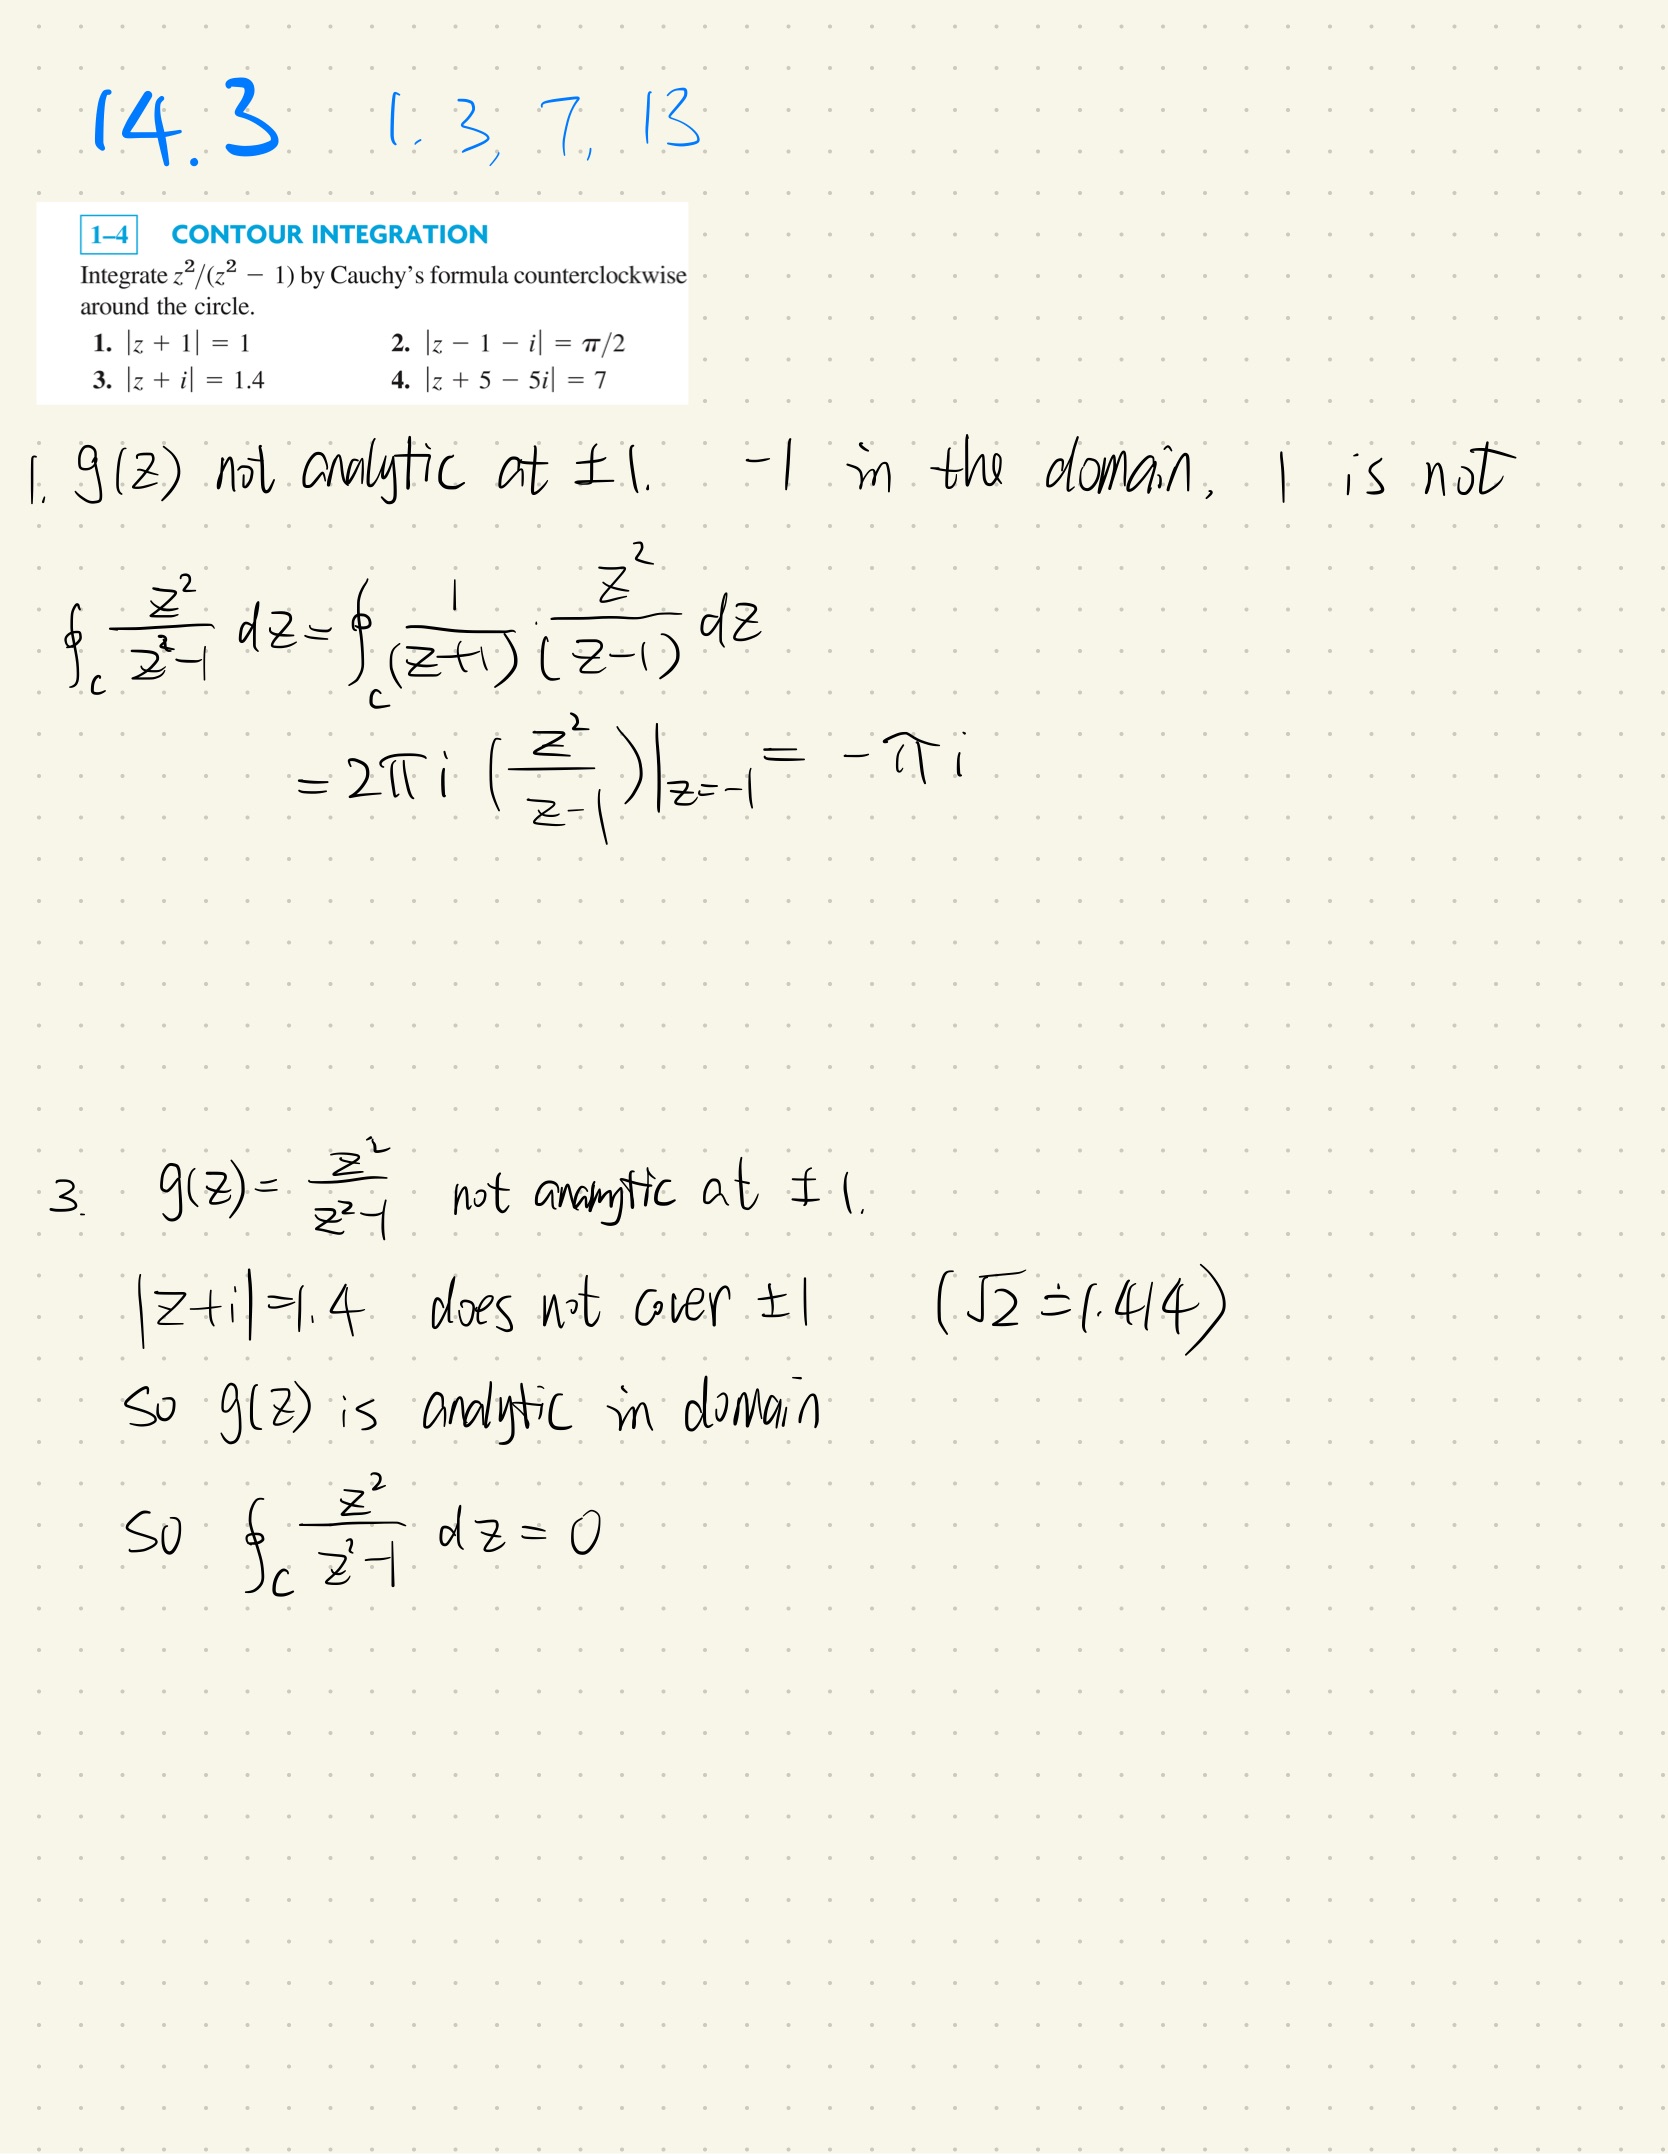 14.3 1. 3, 7, 13
1–4 CONTOUR INTEGRATION
Integrate z²/(z² − 1) by Cauchy's formula counterclockwise
around the circle.
1. |z + 1| = 1 2. |z − 1 − i| = π/2
3. |z + i| = 1.4 4. |z + 5 − 5i| = 7
1. g(z) not analytic at ±1. −1 in the domain, 1 is not
∮_C z²/(z²−1) dz = ∮_C 1/(z+1) · z²/(z−1) dz
= 2πi (z²/(z−1))|_{z=−1} = −πi
3. g(z) = z²/(z²−1) not analytic at ±1.
|z+i|=1.4 does not cover ±1 (√2 ≐ 1.414)
So g(z) is analytic in domain
So ∮_C z²/(z²−1) dz = 0